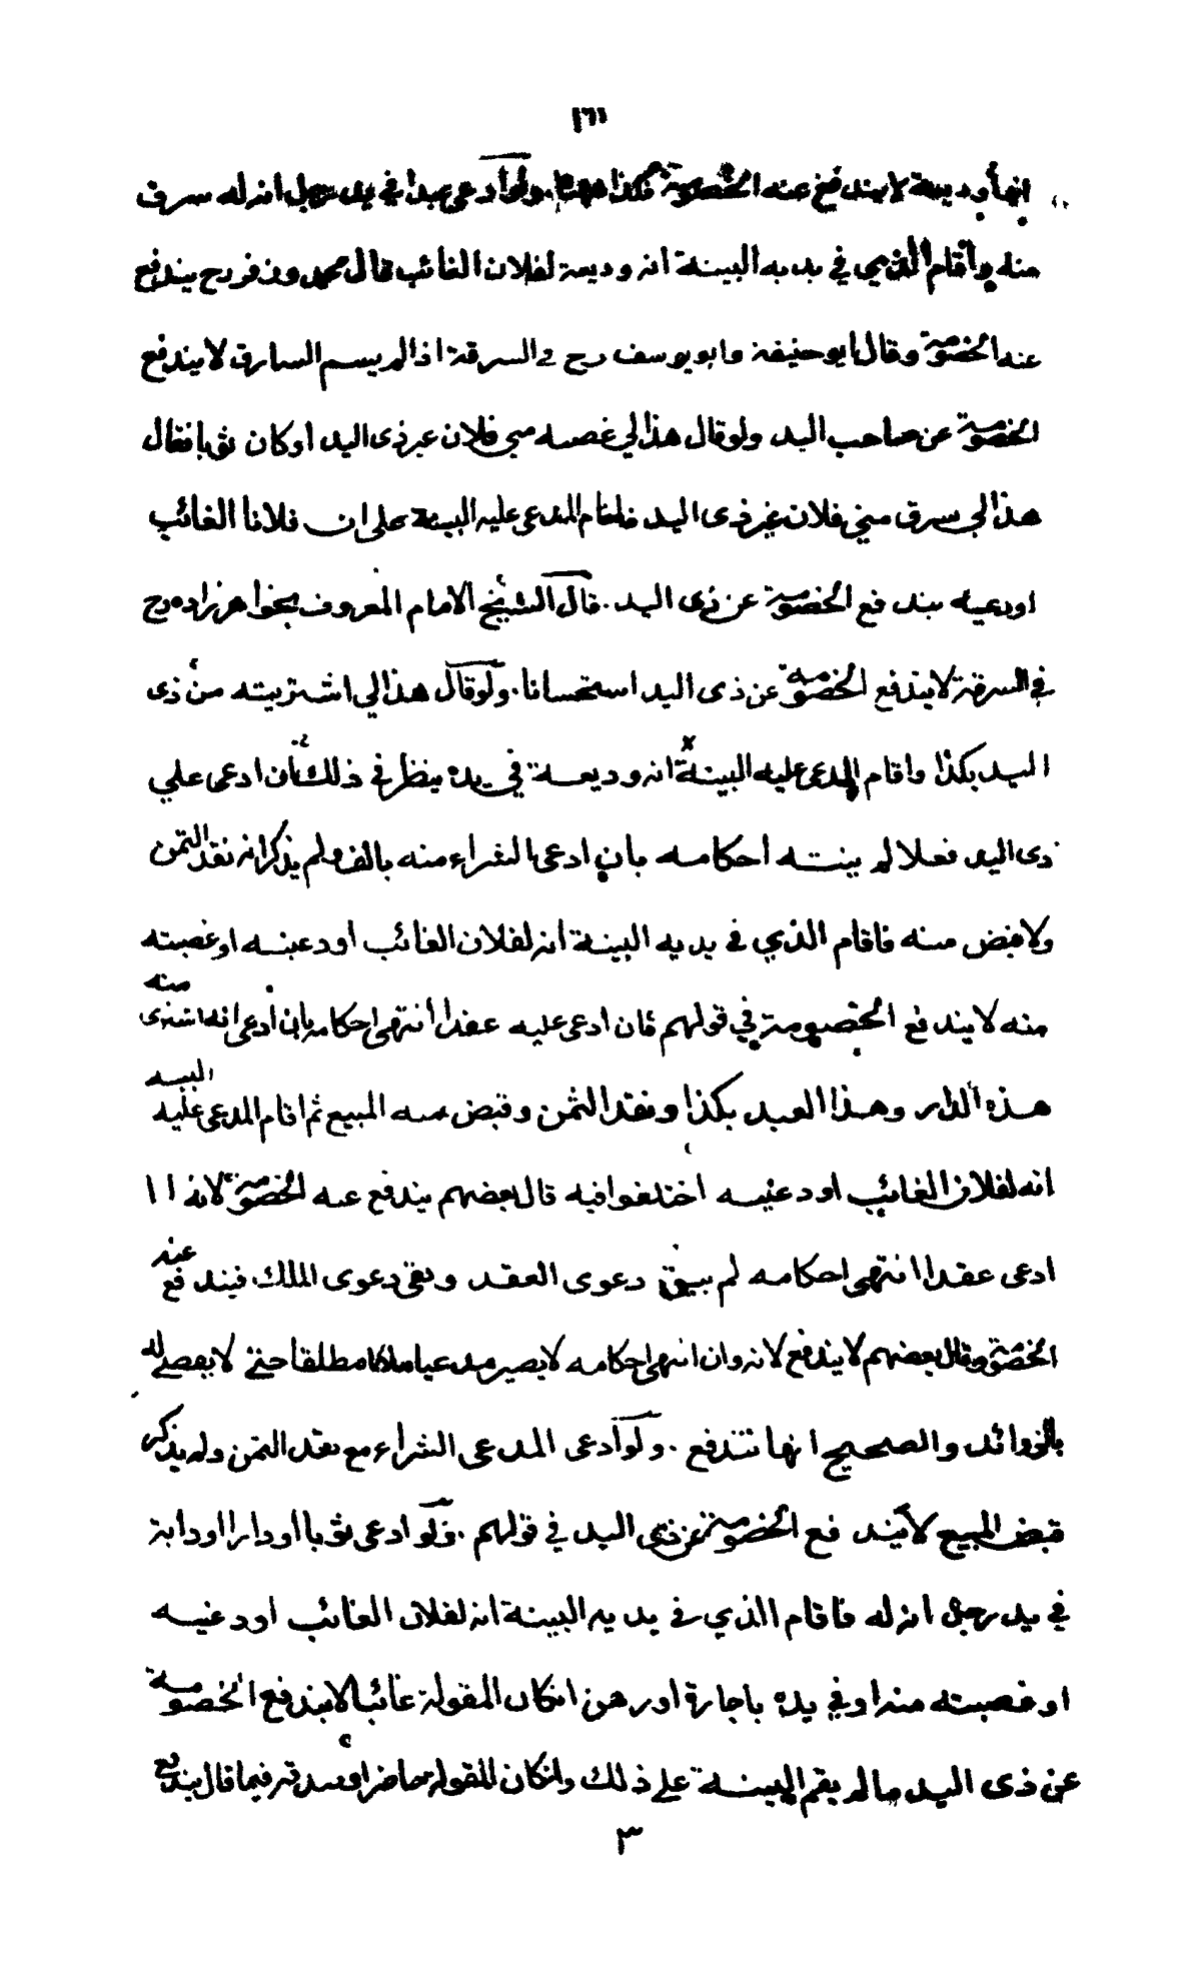 ١٦١
انها وديعة لا يندفع عنه الخصومة فكذا ههنا ولو ادعى عبدا في يد رجل انه له سرق
منه واقام الذي في يديه البينة انه وديعة لفلان الغائب قال محمد وزفر رح يندفع
عنه الخصومة وقال ابو حنيفة وابو يوسف رح في السرقة اذا لم يسم السارق لا يندفع
الخصومة عن صاحب اليد ولو قال هذا لي غصبه مني فلان غير ذى اليد او كان ثوبا فقال
هذا لي سرق مني فلان غير ذى اليد فاقام المدعى عليه البينة على ان فلانا الغائب
اودعيه يندفع الخصومة عن ذى اليد . قال الشيخ الامام المعروف بخواهر زاده رح
في السرقة لا يندفع الخصومة عن ذى اليد استحسانا . ولو قال هذا لي اشتريته من ذى
اليد بكذا واقام المدعى عليه البينة انه وديعة في يده ينظر في ذلك فان ادعى علي
ذى اليد فعلا لم ينته احكامه بان ادعى الشراء منه بالف ولم يذكر انه نقد الثمن
ولا قبض منه فاقام الذي في يديه البينة انه لفلان الغائب اودعنيه او غصبته
منه لا يندفع الخصومة في قولهم فان ادعى عليه عقدا انتهى احكامه بان ادعى انه اشترى منه
هذه الدار وهذا العبد بكذا ونقد الثمن وقبض منه المبيع ثم اقام المدعى عليه البينة
انه لفلان الغائب اودعنيه اختلفوا فيه قال بعضهم يندفع عنه الخصومة لانه ١١
ادعى عقدا انتهى احكامه لم يبق دعوى العقد وبقى دعوى الملك فيندفع عنه
الخصومة وقال بعضهم لا يندفع لانه وان انتهى احكامه لا يصير مدعيا ملكا مطلقا حتى لا يقضى له
بالزوائد والصحيح انها تندفع . ولو ادعى المدعى الشراء مع نقد الثمن ولم يذكر
قبض المبيع لا يندفع الخصومة عن ذى اليد في قولهم . ولو ادعى ثوبا او دارا او دابة
في يد رجل انه له فاقام الذي في يديه البينة انه لفلان الغائب اودعنيه
او غصبته منه او في يده باجارة او رهن ان كان المقر له غائبا لا يندفع الخصومة
عن ذى اليد ما لم يقم البينة على ذلك وان كان المقر له حاضرا وصدقه فيما قال يندفع
٣